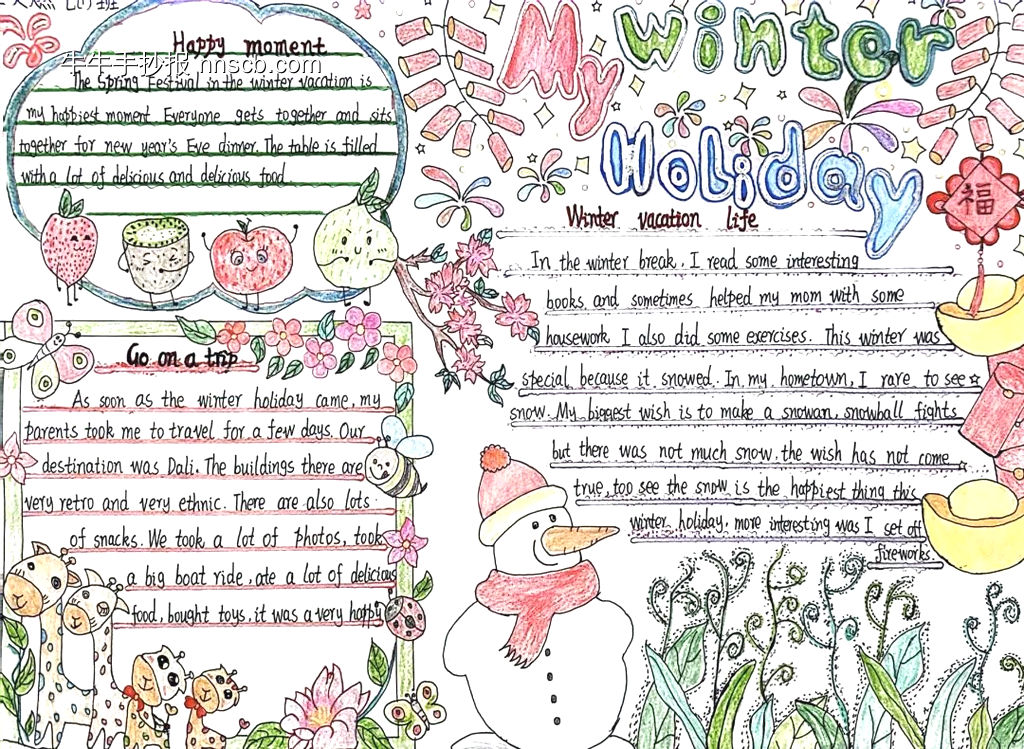 My Winter
Holiday
Happy moment
The Spring Festival in the winter vacation is
my happiest moment. Everyone gets together and sits
together for new year's Eve dinner. The table is filled
with a lot of delicious and delicious food
牛牛手抄报 nnscb.com
Go on a trip
As soon as the winter holiday came, my
parents took me to travel for a few days. Our
destination was Dali. The buildings there are
very retro and very ethnic. There are also lots
of snacks. We took a lot of photos, took
a big boat ride, ate a lot of delicious
food, bought toys, it was a very happy
Winter vacation life
In the winter break, I read some interesting
books, and sometimes helped my mom with some
housework. I also did some exercises. This winter was
special because it snowed. In my hometown, I rare to see
snow. My biggest wish is to make a snowan, snowball fights
but there was not much snow. the wish has not come
true, too see the snow is the happiest thing this
winter holiday, more interesting was I set off
fireworks.
福